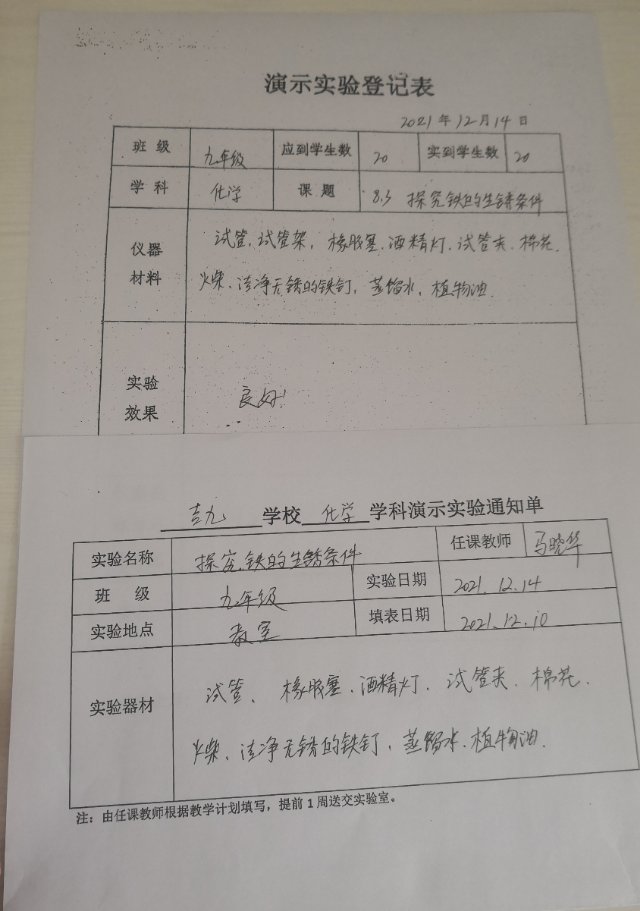 演示实验登记表
2021年12月14日
班 级 九年级 应到学生数 20 实到学生数 20
学 科 化学 课 题 8.3 探究铁的生锈条件
仪器材料 试管、试管架、橡胶塞、酒精灯、试管夹、棉花、
火柴、洁净无锈的铁钉、蒸馏水、植物油.
实验效果 良好
吉九 学校 化学 学科演示实验通知单
实验名称 探究铁的生锈条件 任课教师 马晓华
班 级 九年级 实验日期 2021.12.14
实验地点 教室 填表日期 2021.12.10
实验器材 试管、橡胶塞、酒精灯、试管夹、棉花、
火柴、洁净无锈的铁钉、蒸馏水、植物油.
注：由任课教师根据教学计划填写，提前1周送交实验室。